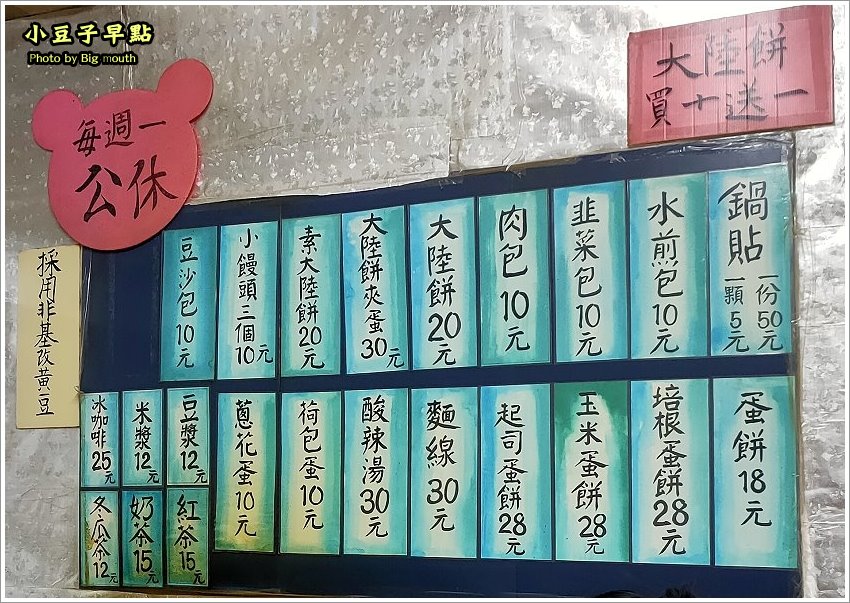 小豆子早點
Photo by Big mouth
每週一
公休
大陸餅
買十送一
採用非基改黃豆
鍋貼
一份50元
一顆5元
水煎包10元
韭菜包10元
肉包10元
大陸餅20元
大陸餅夾蛋30元
素大陸餅20元
小饅頭三個10元
豆沙包10元
蛋餅18元
培根蛋餅28元
玉米蛋餅28元
起司蛋餅28元
麵線30元
酸辣湯30元
荷包蛋10元
蔥花蛋10元
豆漿12元
米漿12元
冰咖啡25元
紅茶15元
奶茶15元
冬瓜茶12元